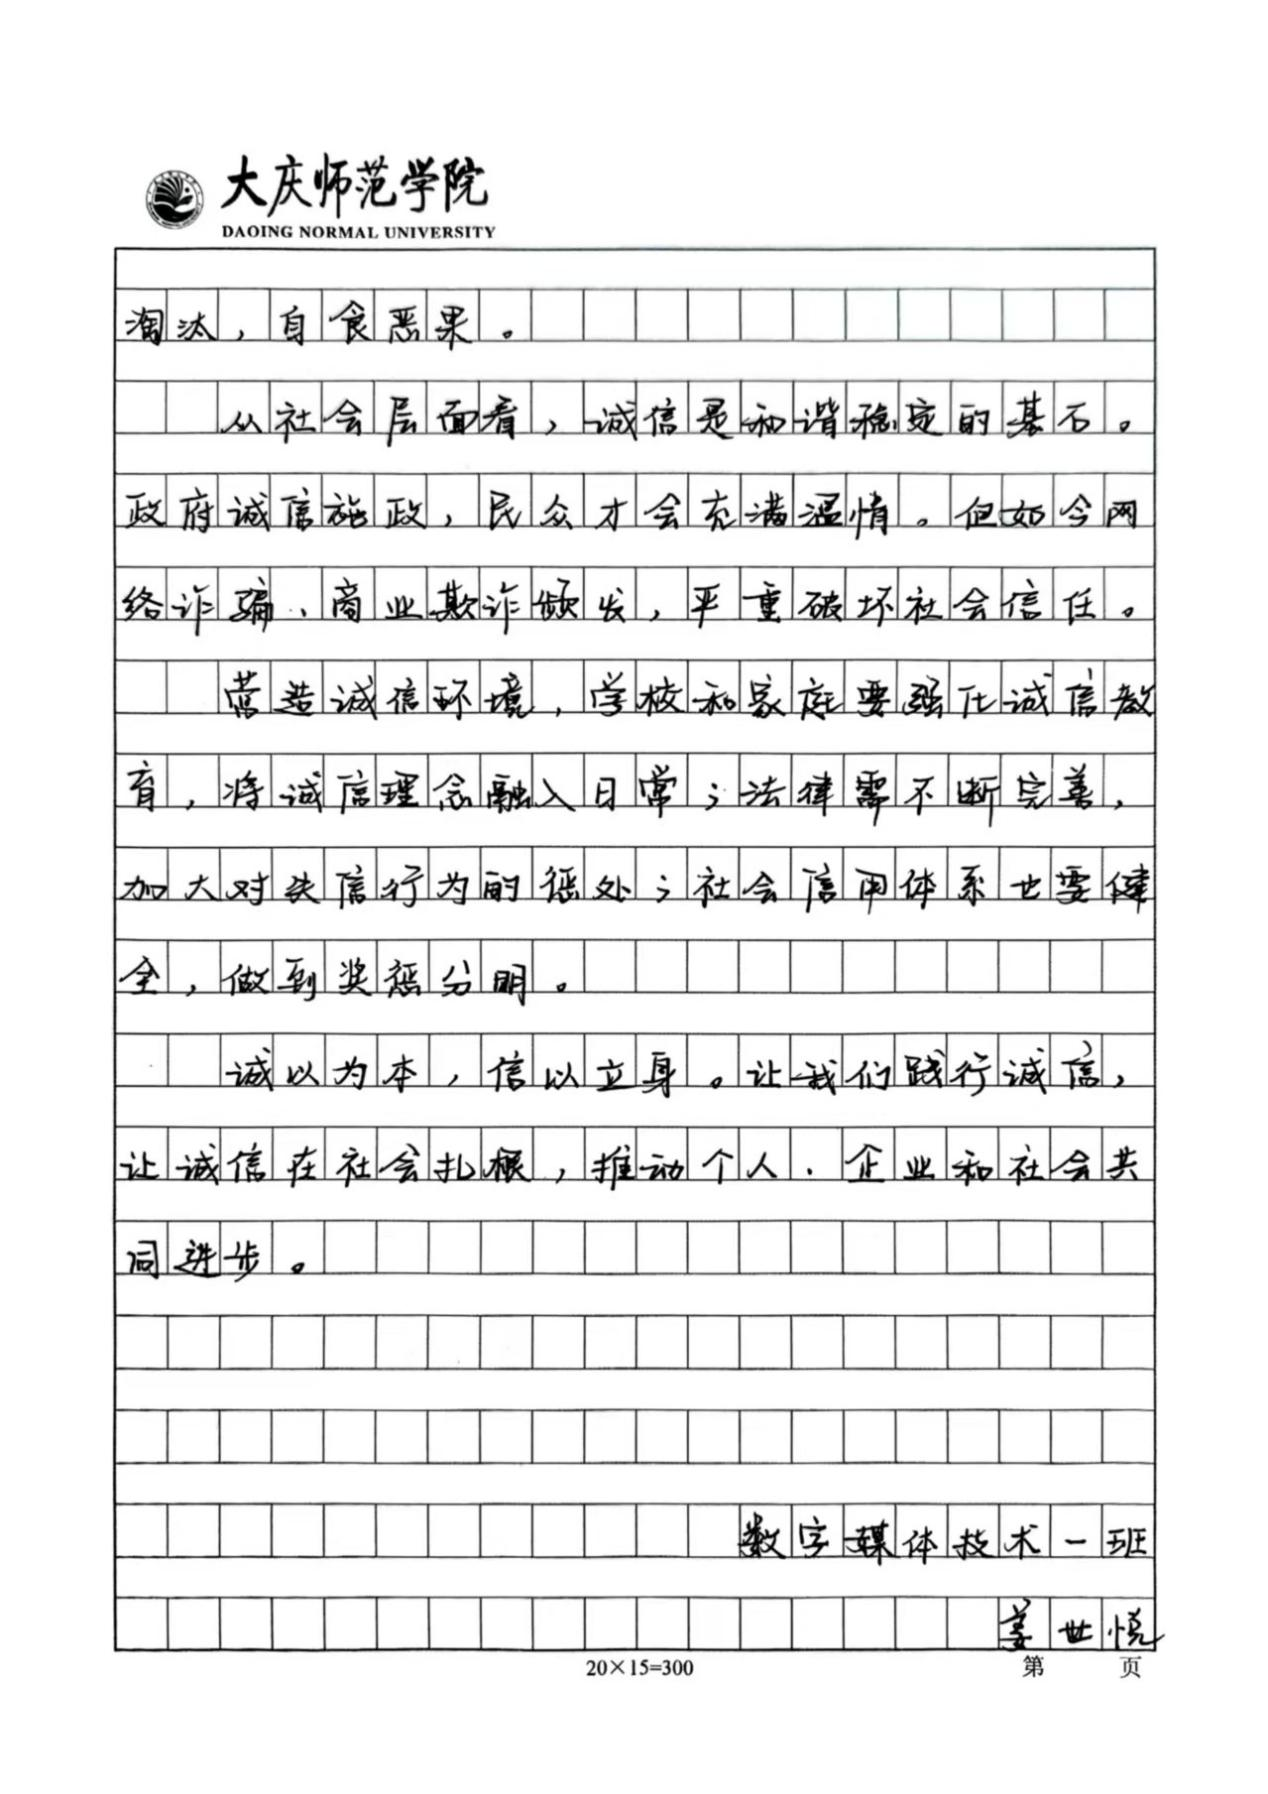 大庆师范学院
DAOING NORMAL UNIVERSITY
淘汰，自食恶果。
从社会层面看，诚信是和谐稳定的基石。
政府诚信施政，民众才会充满温情。但如今网
络诈骗、商业欺诈频发，严重破坏社会信任。
营造诚信环境，学校和家庭要强化诚信教
育，将诚信理念融入日常；法律需不断完善，
加大对失信行为的惩处；社会信用体系也要健
全，做到奖惩分明。
诚以为本，信以立身。让我们践行诚信，
让诚信在社会扎根，推动个人、企业和社会共
同进步。
数字媒体技术一班
姜世悦
20×15=300
第 页